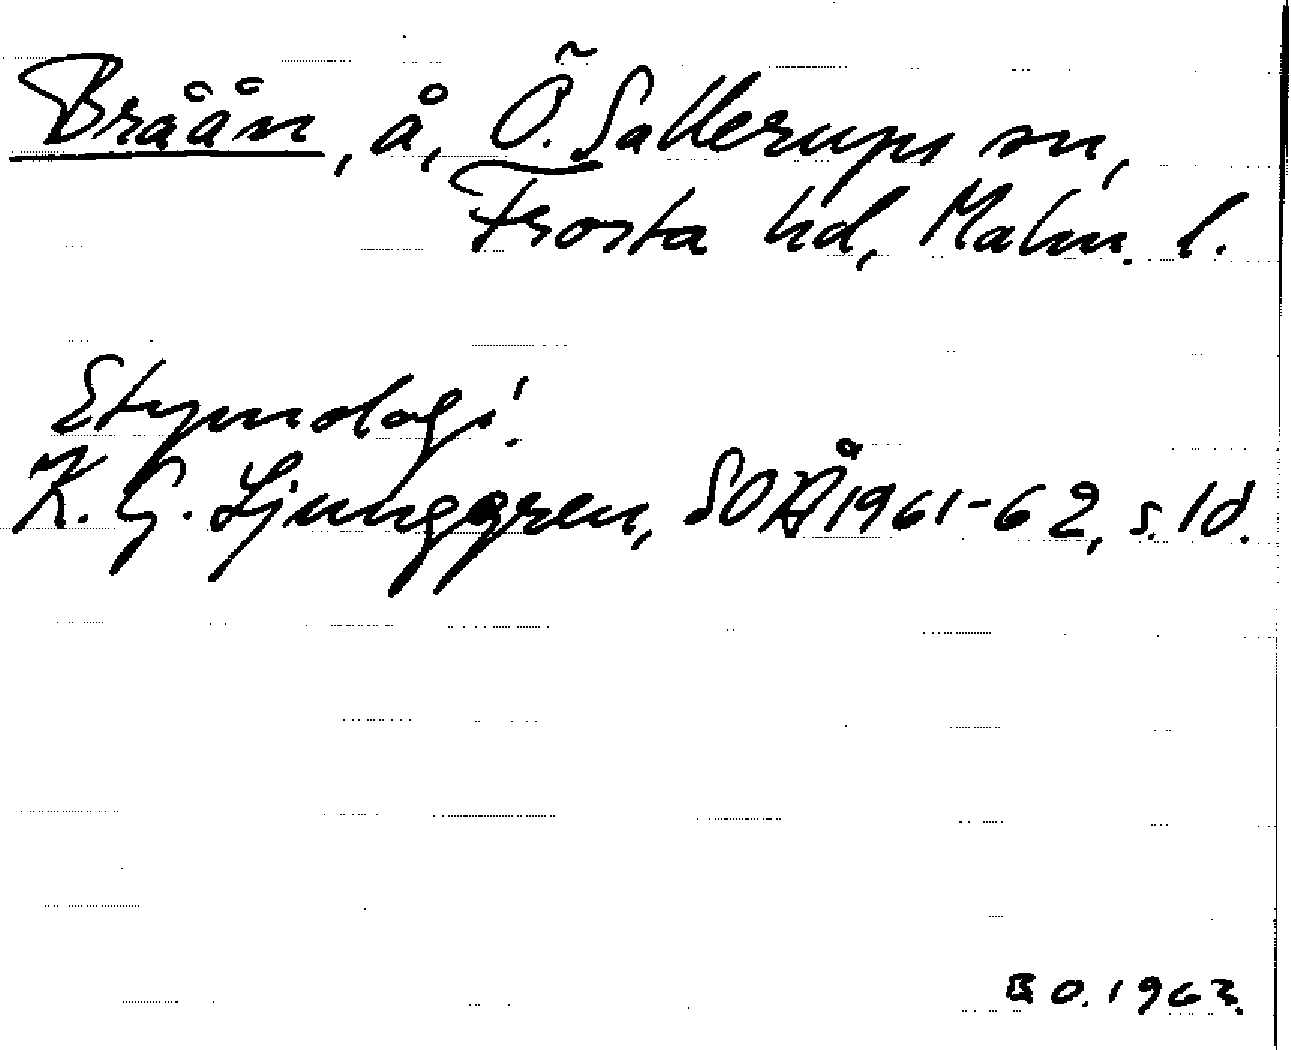 Bråån, å, Ö. Sallerups sn,
Frosta hd, Malm. l.
Etymologi!
K. G. Ljunggren, SOÅ 1961-62, s. 10.
BO. 1963.